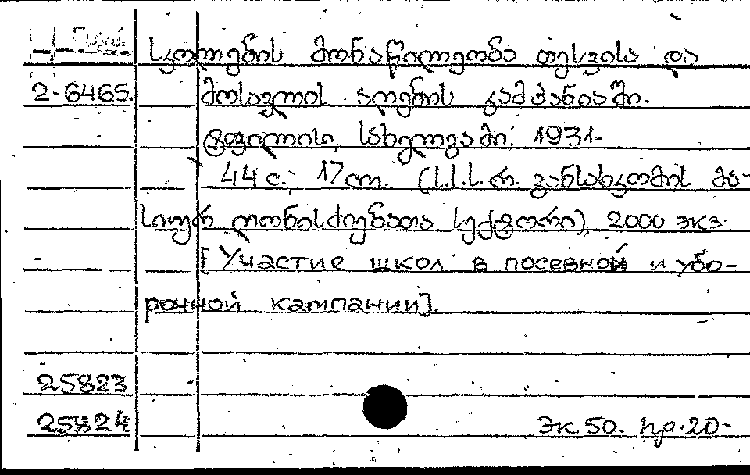 სკოლების მონაწილეობა თესვისა და
2-6465. მოსავლის აღების კამპანიაში.
ტფილისი, სახელგამი, 1931.
44 c.; 17 cm. (ს.ს.ს.რ. განსახკომის მა-
სიურ ღონისძიებათა სექტორი), 2000 экз.
[Участие школ в посевной и убо-
рочной кампании].
25823
25824 Эк. 50. пр. 20-